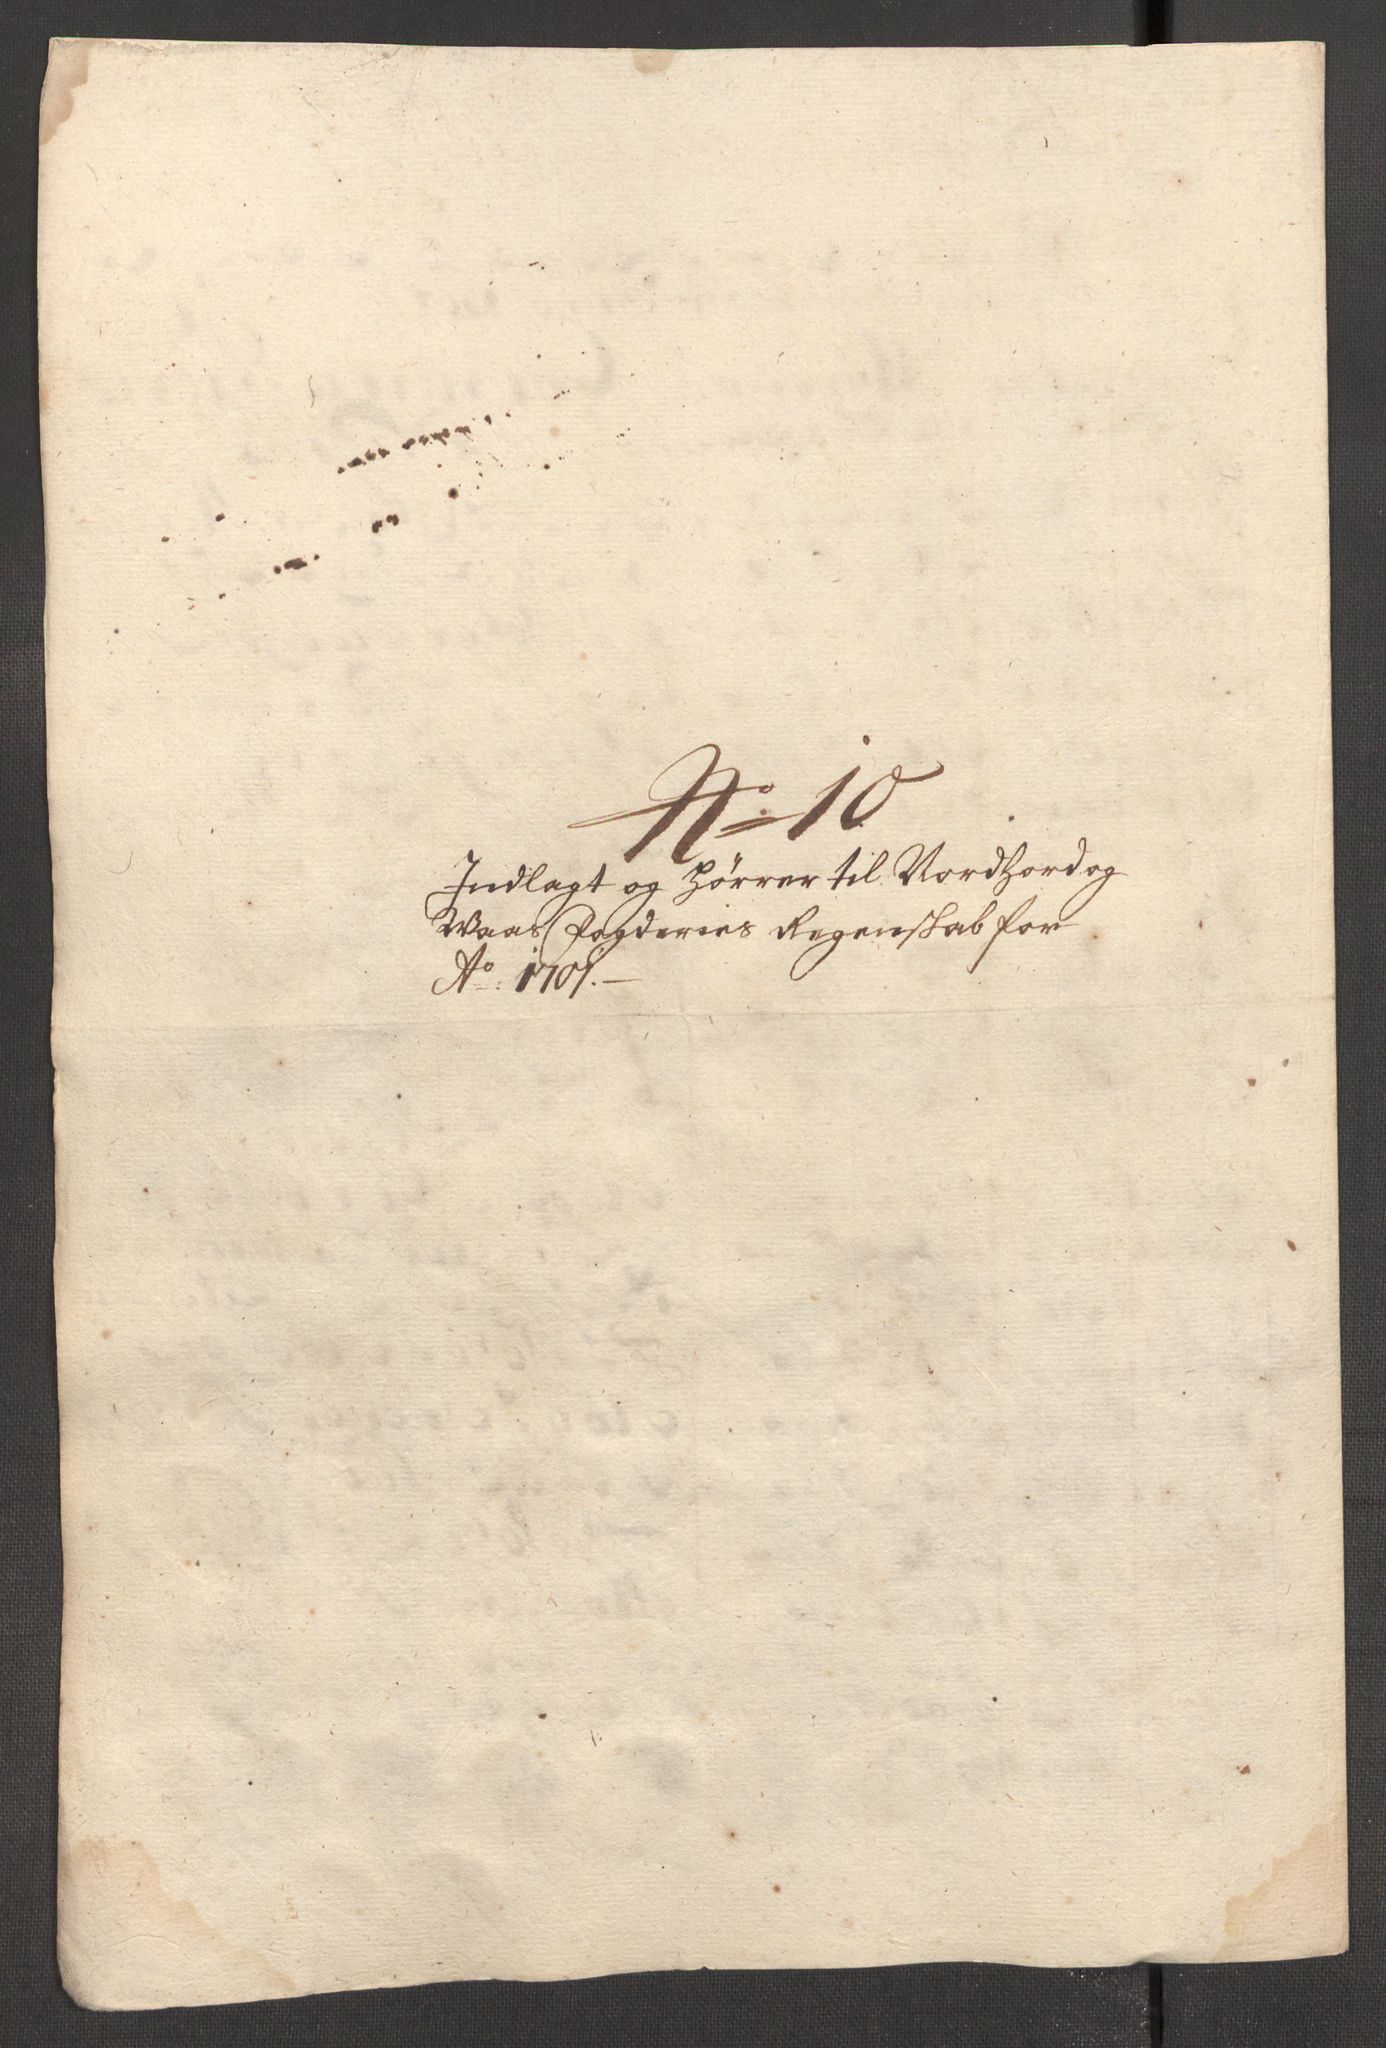 No: 10
Indlagt og hörrer til Nordhord og
Waas Fogderies Regenskab for
Ao: 1701.